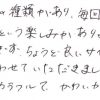 種類があり、毎回
という楽しみがあり
す。ちょうど良いサイ
わせていただきまし
カラフルで かわい